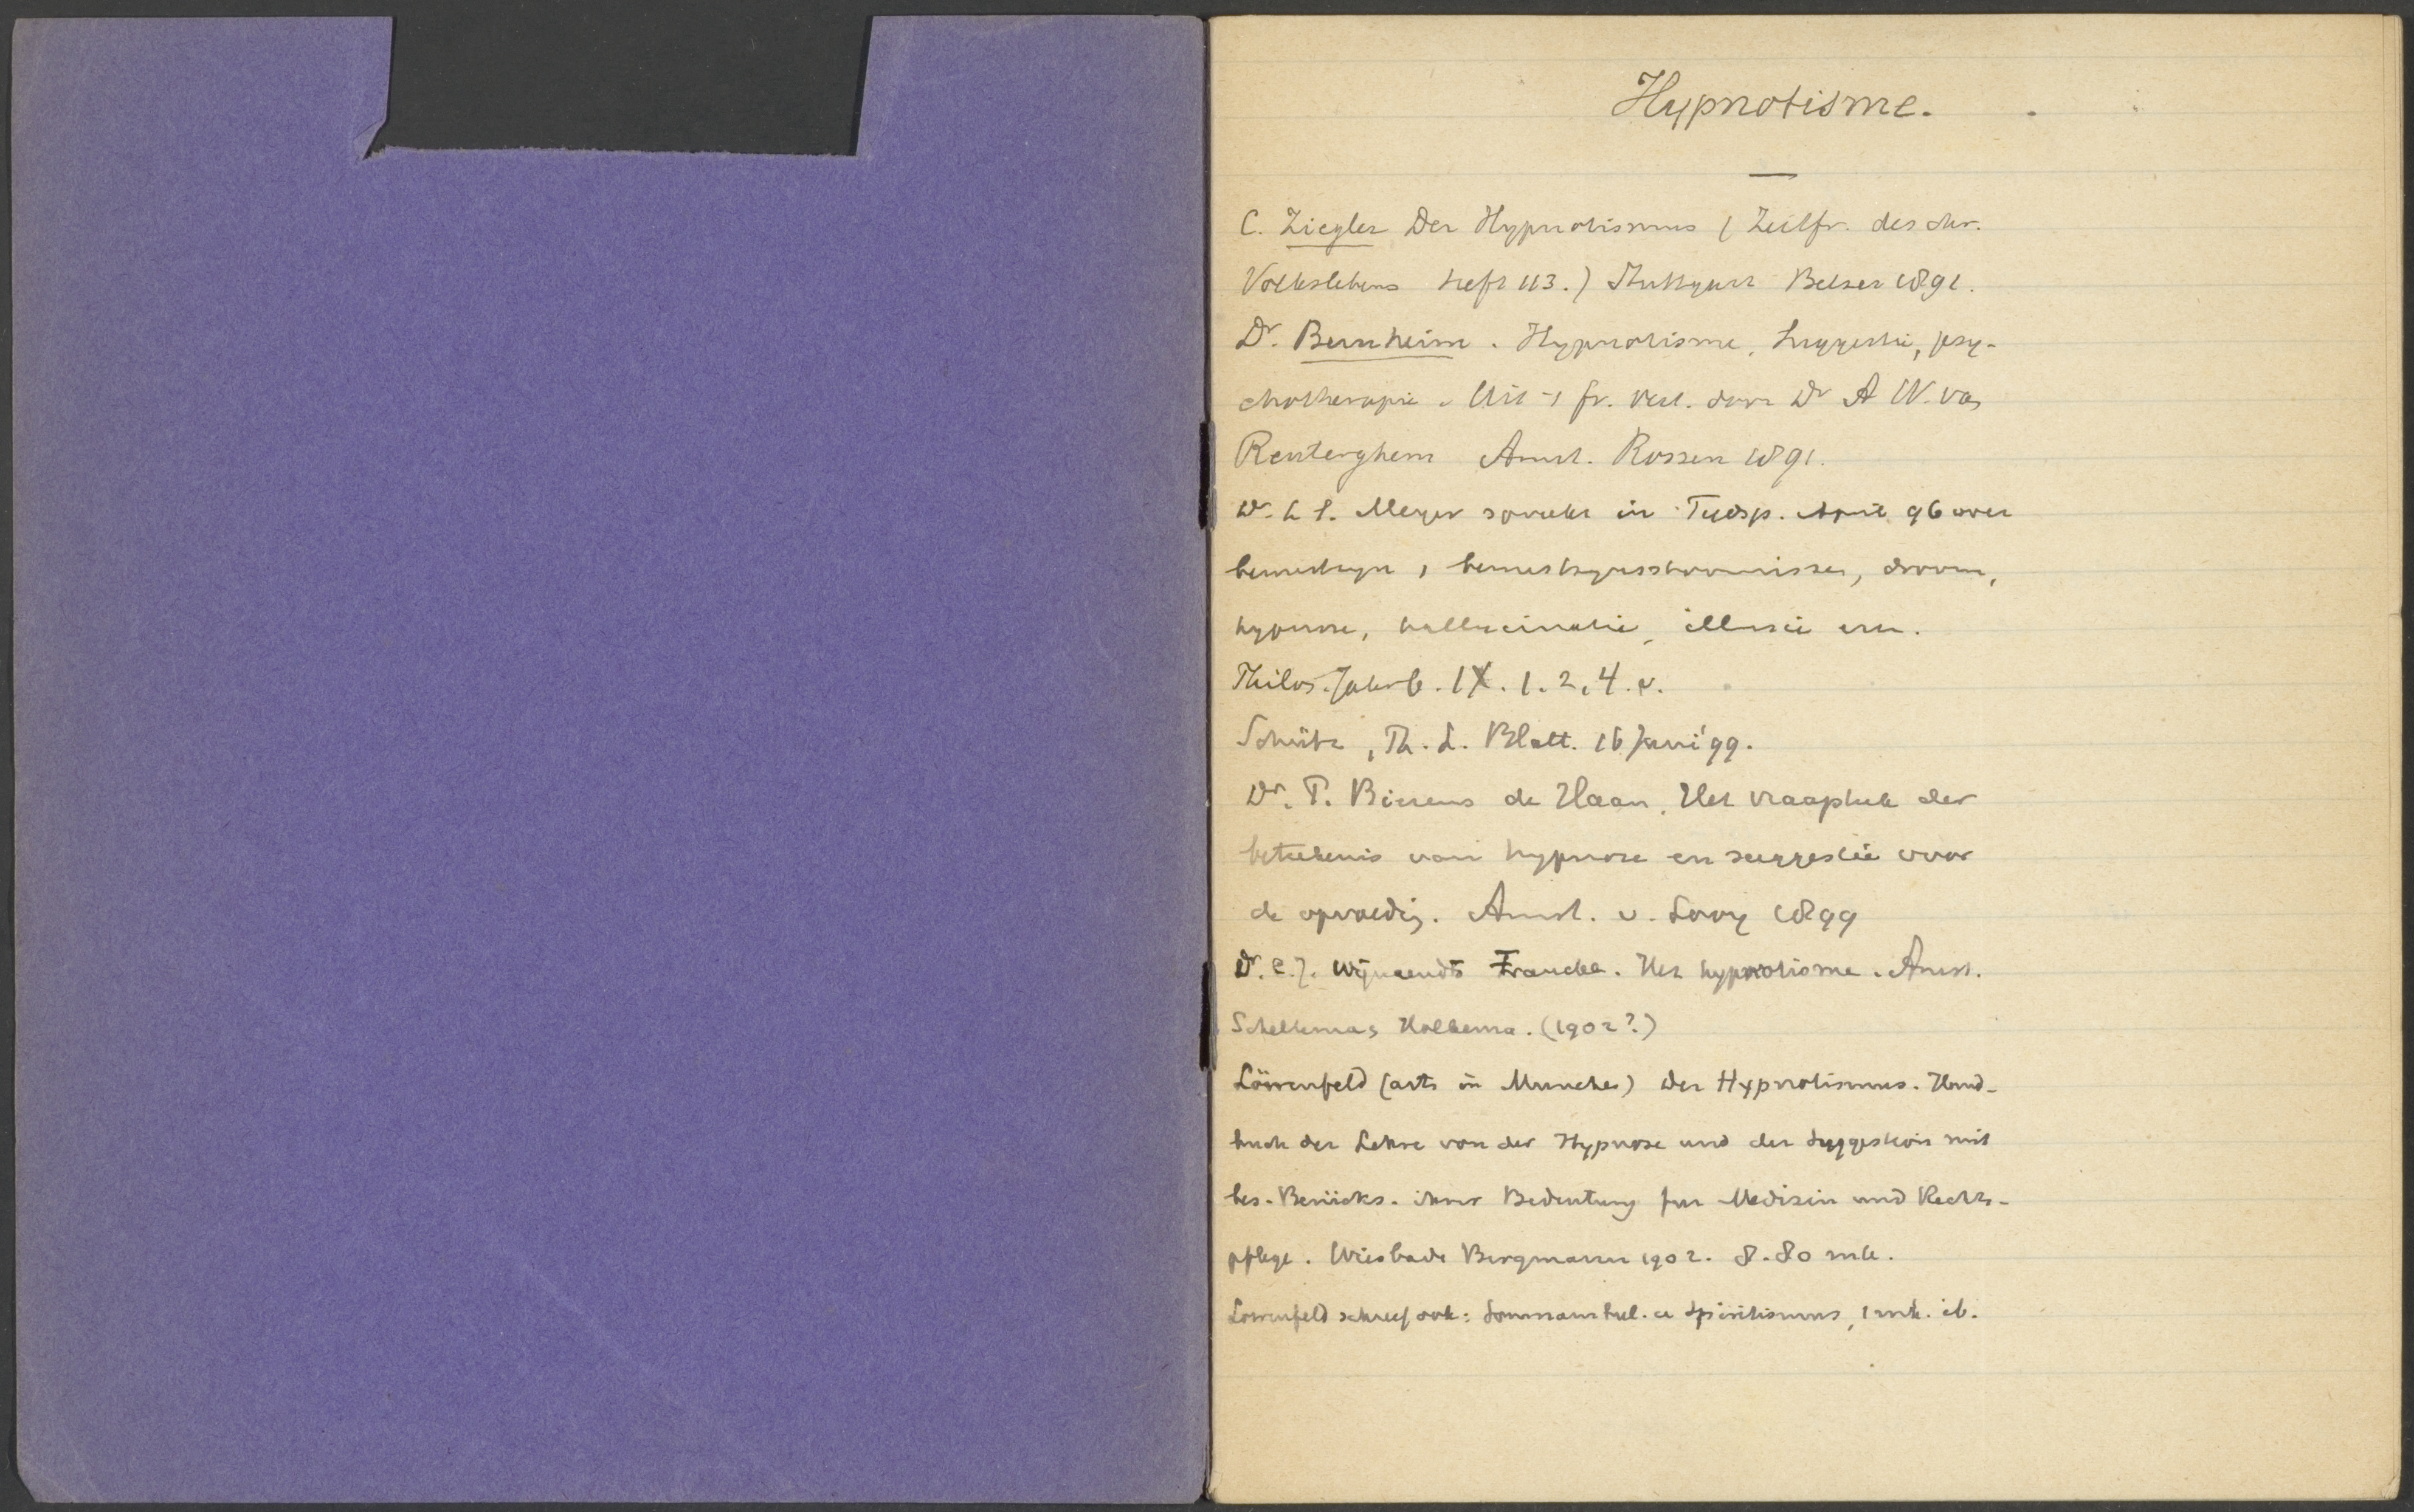 Hypnotisme.
C. Ziegler Der Hypnotismus (Zeitfr. des chr.
Volkslebens Heft 113.) Stuttgart Belser 1891.
Dr. Bernheim. Hypnotisme, Suggestie, psy-
chotherapie. Uit 't fr. vert. door Dr A W. van
Renterghem Amst. Rossen 1891.
Dr. L S. Meyer spreekt in Tijdsp. April 96 over
bewustzijn, bewustzijnsstoornissen, droom,
hypnose, hallucinatie, illusie enz.
Philos. Jahrb. IX. 1. 2. 4. v.
Schütz, Th. L. Blatt. 16 Juni '99.
Dr. P. Bierens de Haan, Het vraagstuk der
beteekenis van hypnose en suggestie voor
de opvoedig. Amst. v. Looy 1899
Dr. C. J. Wijnaendts Francken. Het hypnotisme. Amst.
Scheltema & Holkema. (1902?)
Löwenfeld (arts in Munchen) Der Hypnotismus. Hand-
buch der Lehre von der Hypnose und der Suggestion mit
bes. Berücks. ihrer Bedeutung fur Medizin und Rechts-
pflege. Wiesbade Bergmann 1902. 8.80 mk.
Löwenfeld schreef ook: Somnambul. u Spiritismus, 1 mk. ib.